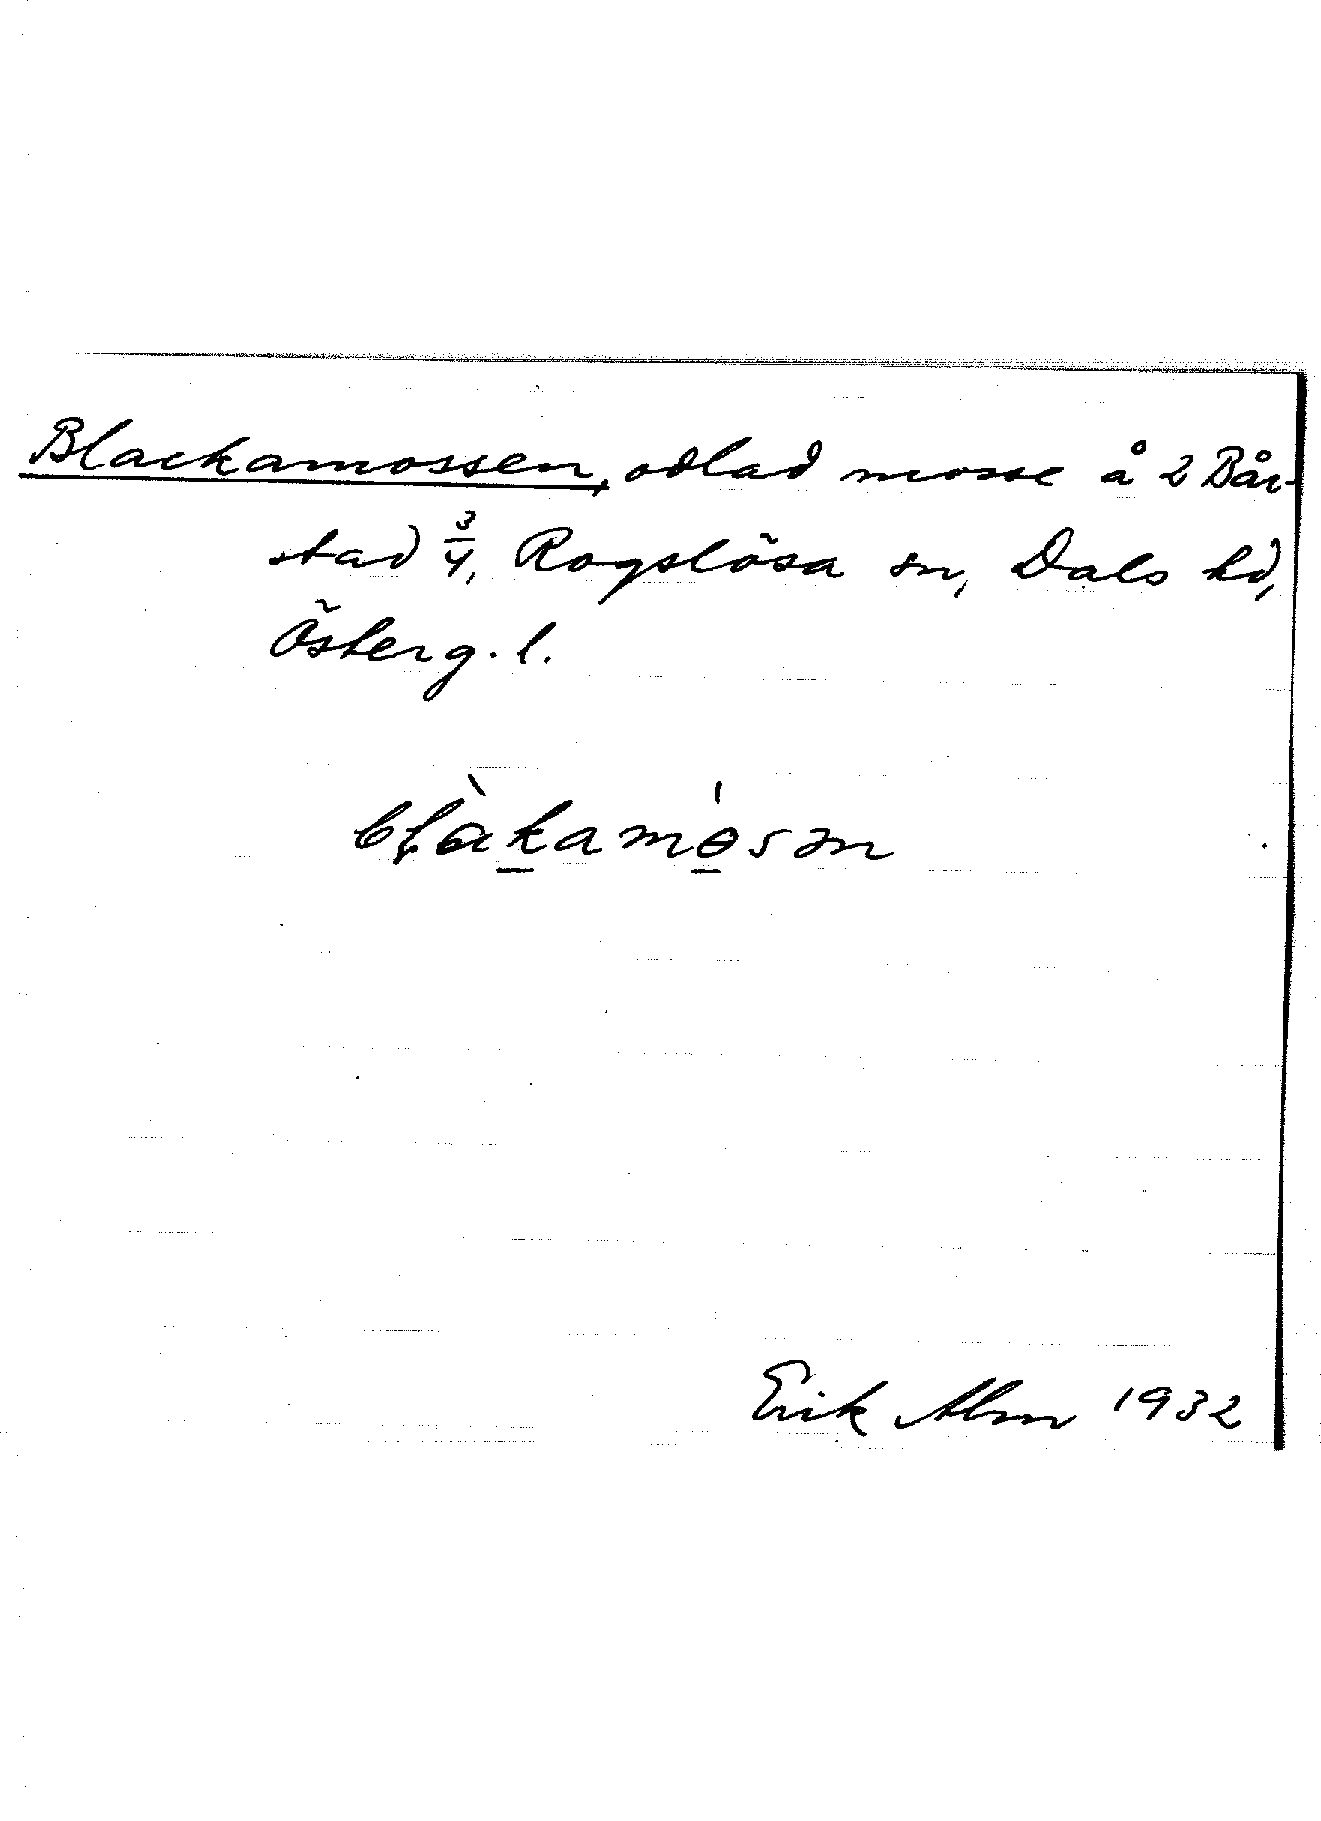 Blackamossen, odlad mosse å 2 Bår-
stad 3/4, Rogslösa sn, Dals hd,
Österg. l.
blàkamɵ́sən
Erik Alm 1932